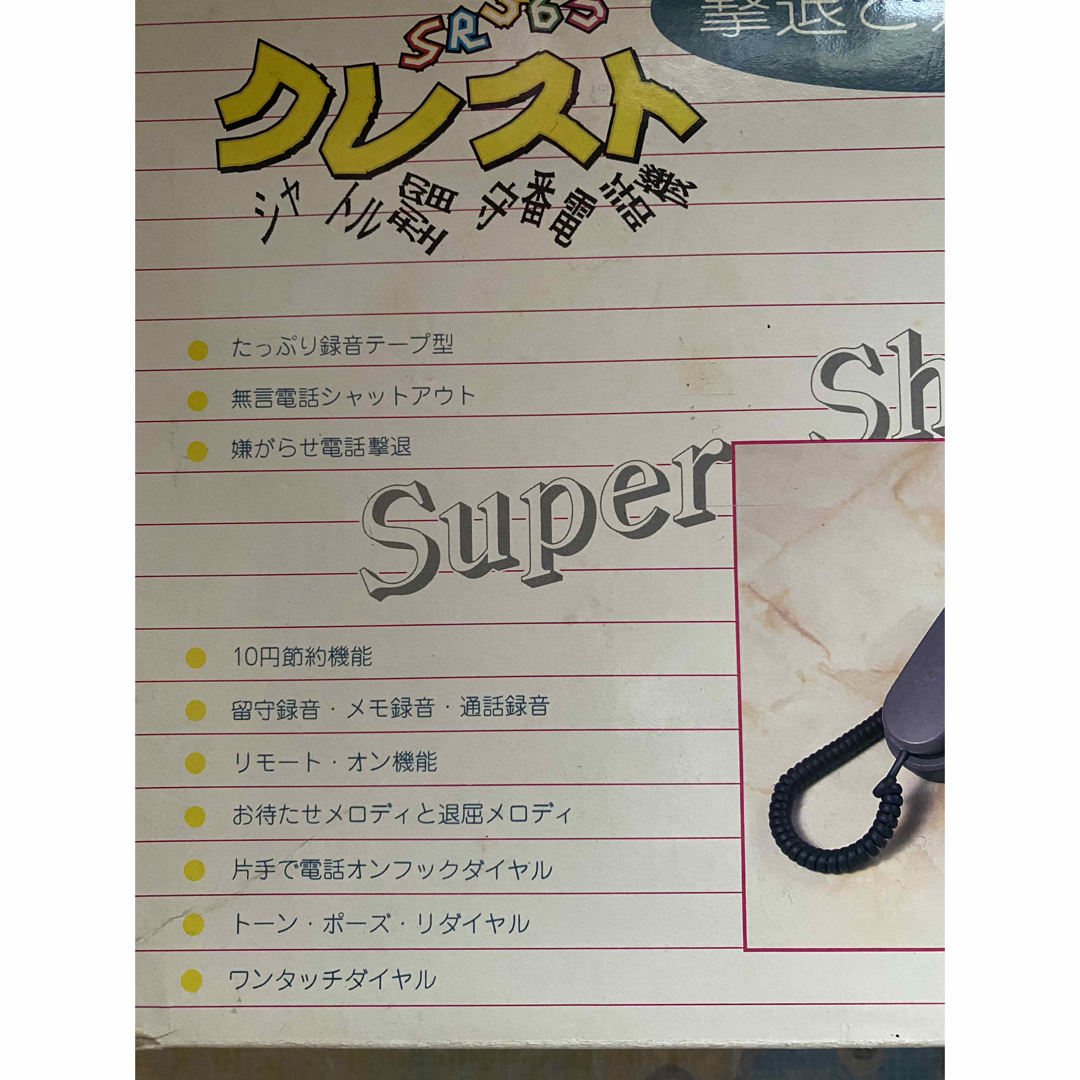 撃退と
クレスト
シャトル型留守番電話機
たっぷり録音テープ型
無言電話シャットアウト
嫌がらせ電話撃退
Super Sh
10円節約機能
留守録音・メモ録音・通話録音
リモート・オン機能
お待たせメロディと退屈メロディ
片手で電話オンフックダイヤル
トーン・ポーズ・リダイヤル
ワンタッチダイヤル